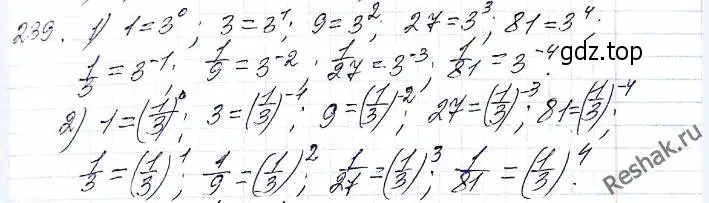 239. 1) 1=3⁰; 3=3¹; 9=3²; 27=3³; 81=3⁴;
1/3=3⁻¹; 1/9=3⁻²; 1/27=3⁻³; 1/81=3⁻⁴.
gdz.top
2) 1=(1/3)⁰; 3=(1/3)⁻¹; 9=(1/3)⁻²; 27=(1/3)⁻³; 81=(1/3)⁻⁴;
1/3=(1/3)¹; 1/9=(1/3)²; 1/27=(1/3)³; 1/81=(1/3)⁴.
Reshak.ru